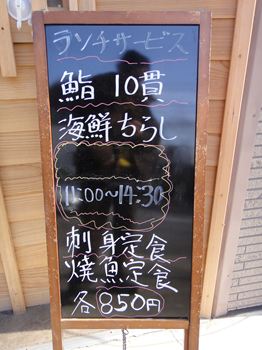 ランチサービス
鮨 10貫
海鮮ちらし
11:00~14:30
刺身定食
焼魚定食
各850円